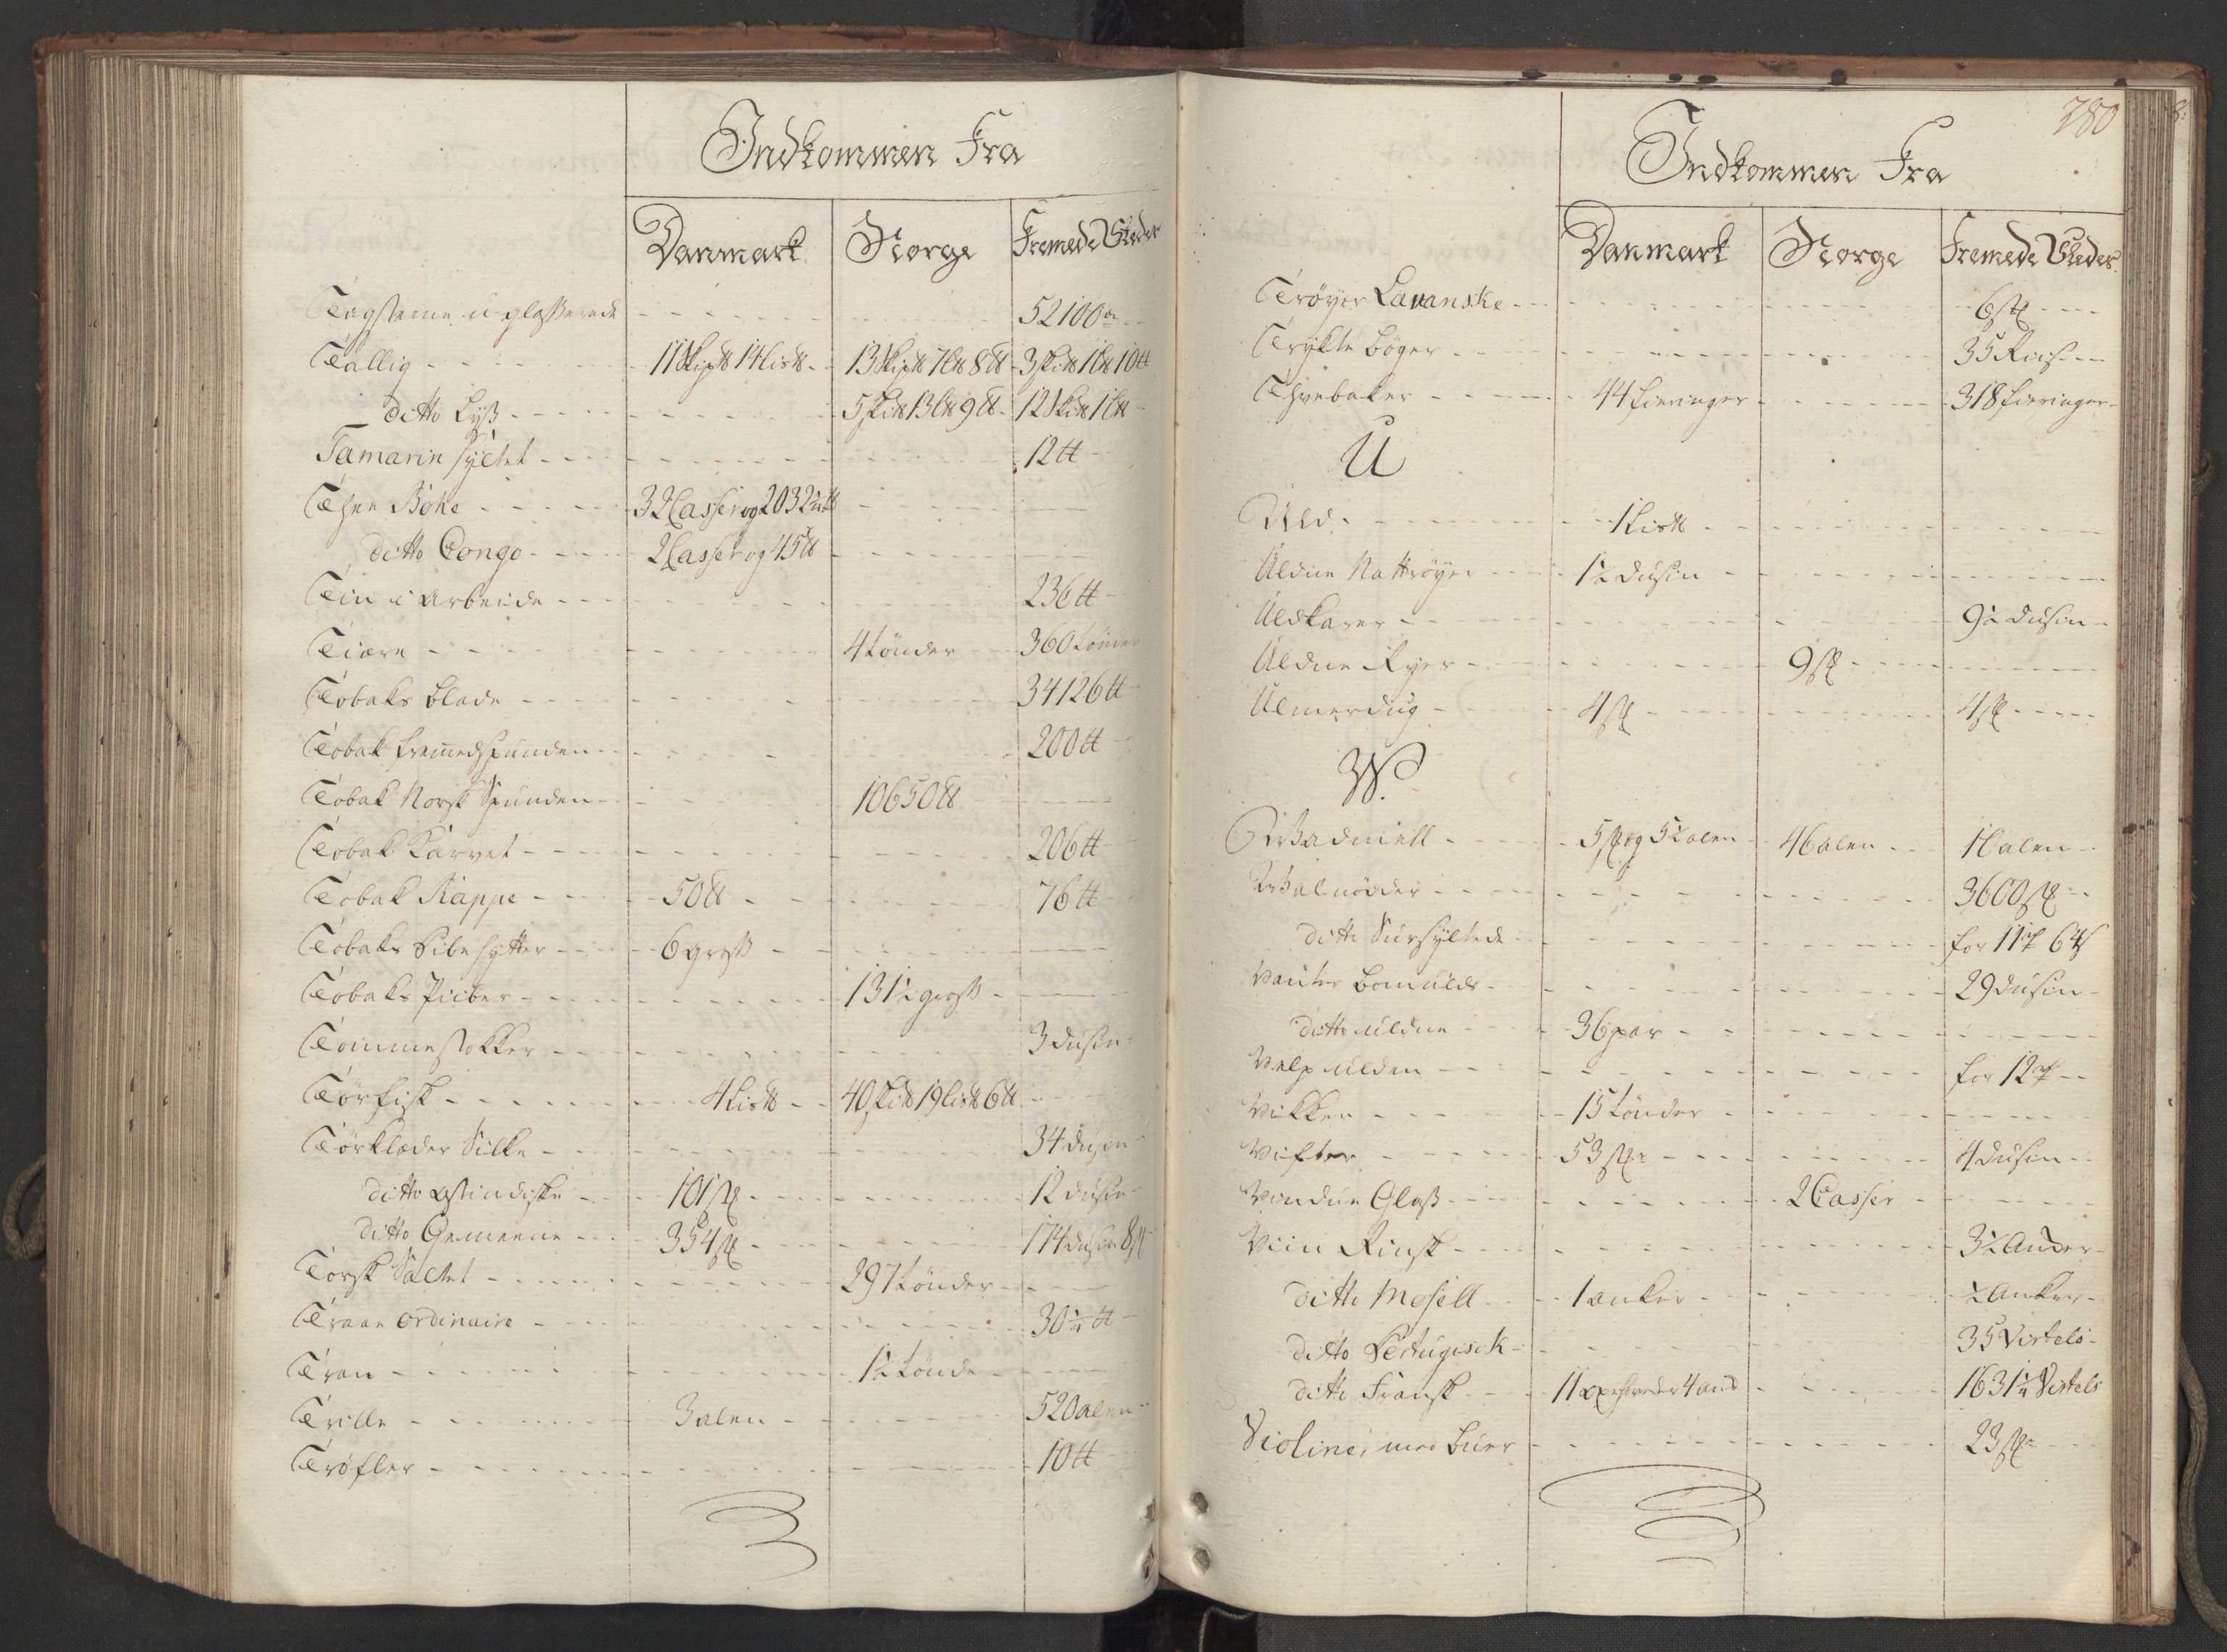 Indkommen Fra
Danmark Norge Fremede Steder
Tagsteene u-glasserede 52100
Tallig 11 Skip℔ 14 Lis℔ 13 Skip℔ 7 L℔ 8 ℔ 3 Ski℔ 1 L℔ 10 ℔
ditto Lyß 5 Ski℔ 13 L℔ 9 ℔ 12 Ski℔ 1 L℔
Tamarin syltet 12 ℔
Thee Bohe 32 Casser og 2032 ½ ℔
ditto Congo 2 Casser og 45 ℔
Tin i Arbeide 236 ℔
Tiære 4 Tönder 360 Tönder
Tobaks Blade 34126 ℔
Tobak fremedspunden 200 ℔
Tobak Norsk Spunden 10650 ℔
Tobak Karvet 206 ℔
Tobak Rappe 50 ℔ 76 ℔
Tobaks Pibe hytter 6 groß
Tobaks Piiber 131 ½ groß
Tommestokker 3 dusin
Törfisk 4 Lis℔ 40 Ski℔ 19 Lis℔ 6 ℔
Törklæder Silke 34 dusin
ditto Ostindiske 101 st 12 dusin
ditto Gemeene 354 st 174 dusin 8 st
Torsk Saltet 297 Tönder
Traae ordinaire 30 ¼ ℔
Tran 1 ½ Tönde
Trille 3 alen 520 alen
Tröfler 10 ℔
280
Indkommen Fra
Danmark Norge Fremede Steder
Tröyer Lavanske 6 st
Trykte Böger 35 Riis
Thvebaker 44 fieringer 318 fieringer
U
Uld 1 Lis℔
Uldne Nattröyer 1 ½ dusin
Uldkarer 9 ½ dusin
Uldne Ryer 9 st
Ulmerdug 4 st 4 st
W.
Wadmell 5 st og 5 ½ alen 46 alen 10 alen
Walnödder 3600 st
ditto Sursyltede for 11 rd 64 s
Vanter Bomulds 29 dusin
ditto uldne 36 par
Velp ulden for 12 rd
Vikker 15 Tönder
Vifter 53 st 4 dusin
Vindue Glaß 2 Casser
Viin Rinsk 3 ½ Anker
ditto Mosell 1 anker ½ Anker
ditto Portugisisk 35 Viertels
ditto Fransk 11 oxehoveder 4 ank 1631 ¼ Viertels
Violiner med Buer 23 st